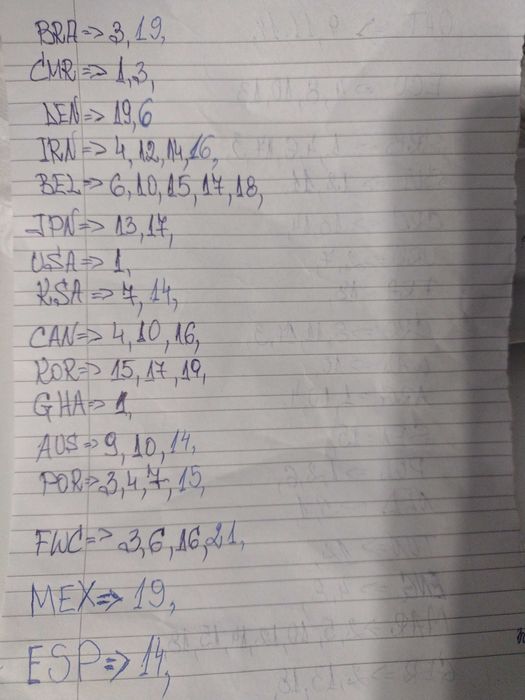 BRA=> 3, 19,
CMR=> 1, 3,
DEN=> 19, 6
IRN=> 4, 12, 14, 16,
BEL=> 6, 10, 15, 17, 18,
JPN=> 13, 17,
USA=> 1,
KSA=> 7, 14,
CAN=> 4, 10, 16,
KOR=> 15, 17, 19,
GHA=> 1,
AUS=> 9, 10, 14,
POR=> 3, 4, 7, 15,
FWC=> 3, 6, 16, 21,
MEX=> 19,
ESP=> 14,